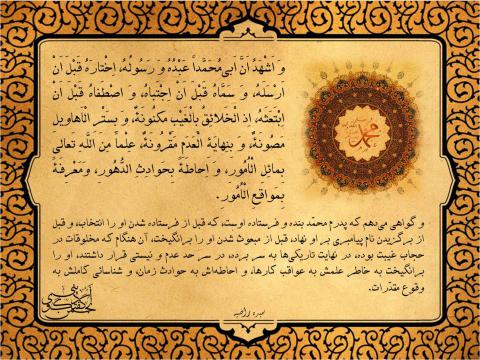 وَ اَشْهَدُ اَنَّ اَبی‌مُحَمَّداً عَبْدُهُ وَ رَسُولُهُ، اِخْتارَهُ قَبْلَ اَنْ
اَرْسَلَهُ، وَ سَمَّاهُ قَبْلَ اَنْ اِجْتَباهُ، وَ اصْطَفاهُ قَبْلَ اَنْ
اِبْتَعَثَهُ، اِذِ الْخَلائِقُ بِالْغَيْبِ مَكْنُونَةٌ، وَ بِسِتْرِ الْاَهاويلِ
مَصُونَةٌ، وَ بِنِهايَةِ الْعَدَمِ مَقْرُونَةٌ، عِلْماً مِنَ اللَّهِ تَعالی
بِمائِلِ الْاُمُورِ، وَ اِحاطَةً بِحَوادِثِ الدُّهُورِ، وَمَعْرِفَةً
بِمَواقِعِ الْاُمُورِ.
محمد
و گواهی می‌دهم که پدرم محمّد بنده و فرستاده اوست، که قبل از فرستاده شدن او را انتخاب، و قبل
از برگزیدن نام پیامبری بر او نهاد، قبل از مبعوث شدن او را برانگیخت، آن هنگام که مخلوقات در
حجاب غیبت بوده، در نهایت تاریکی‌ها به سر برده، در سر حد عدم و نیستی قرار داشتند، او را
برانگیخت به خاطر علمش به عواقب کارها، و احاطه‌اش به حوادث زمان، و شناسائی کاملش به
وقوع مقدّرات.